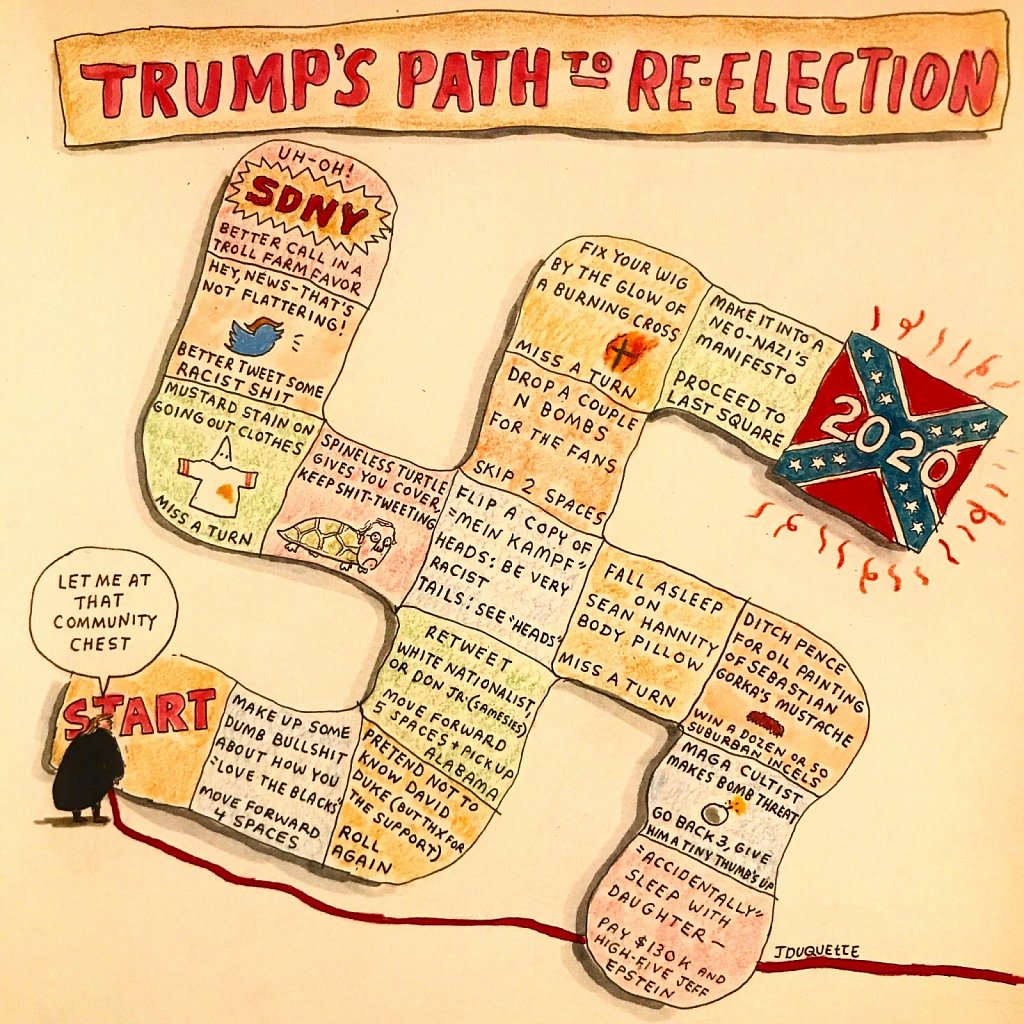 TRUMP'S PATH TO RE-ELECTION
UH-OH!
SDNY
BETTER CALL IN A
TROLL FARM FAVOR
HEY, NEWS-THAT'S
NOT FLATTERING!
BETTER TWEET SOME
RACIST SHIT
MUSTARD STAIN ON
GOING OUT CLOTHES
MISS A TURN
SPINELESS TURTLE
GIVES YOU COVER,
KEEP SHIT-TWEETING
FIX YOUR WIG
BY THE GLOW OF
A BURNING CROSS
MISS A TURN
MAKE IT INTO A
NEO-NAZI'S
MANIFESTO
PROCEED TO
LAST SQUARE
2020
DROP A COUPLE
N BOMBS
FOR THE FANS
SKIP 2 SPACES
FLIP A COPY OF
"MEIN KAMPF"
HEADS: BE VERY
RACIST
TAILS: SEE "HEADS"
FALL ASLEEP
ON
SEAN HANNITY
BODY PILLOW
MISS A TURN
DITCH PENCE
FOR OIL PAINTING
OF SEBASTIAN
GORKA'S MUSTACHE
WIN A DOZEN OR SO
SUBURBAN INCELS
MAGA CULTIST
MAKES BOMB THREAT
GO BACK 3, GIVE
HIM A TINY THUMB'S UP
"ACCIDENTALLY"
SLEEP WITH
DAUGHTER-
PAY $130K AND
HIGH-FIVE JEFF
EPSTEIN
RETWEET
WHITE NATIONALIST,
OR DON JR. (SAMESIES)
MOVE FORWARD
5 SPACES + PICK UP
ALABAMA
PRETEND NOT TO
KNOW DAVID
DUKE (BUT THX FOR
THE SUPPORT)
ROLL
AGAIN
MAKE UP SOME
DUMB BULLSHIT
ABOUT HOW YOU
"LOVE THE BLACKS"
MOVE FORWARD
4 SPACES
START
LET ME AT
THAT
COMMUNITY
CHEST
JDUQUETTE